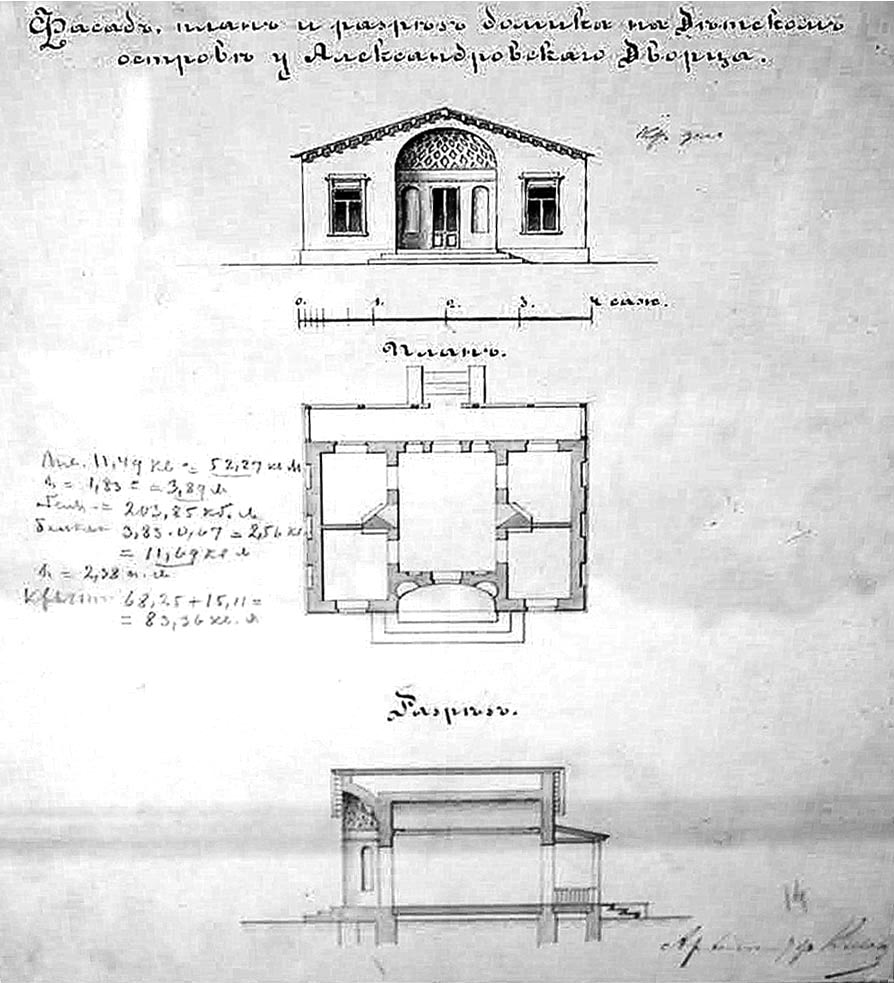 Фасадъ, планъ и разрѣзъ домика на Дѣтскомъ
островѣ у Александровскаго Дворца.
0. 1. 2. 3. 4 саж.
Планъ.
11,49 кв = 52,27 кв м
h = 1,83 = 3,89 м
= 203,85 кб. м
3,83 · 0,67 = 2,56 кв
= 11,69 кв м
h = 2,38 п. м
68,25 + 15,11 =
= 83,36 кв. м
Разрѣзъ.
14